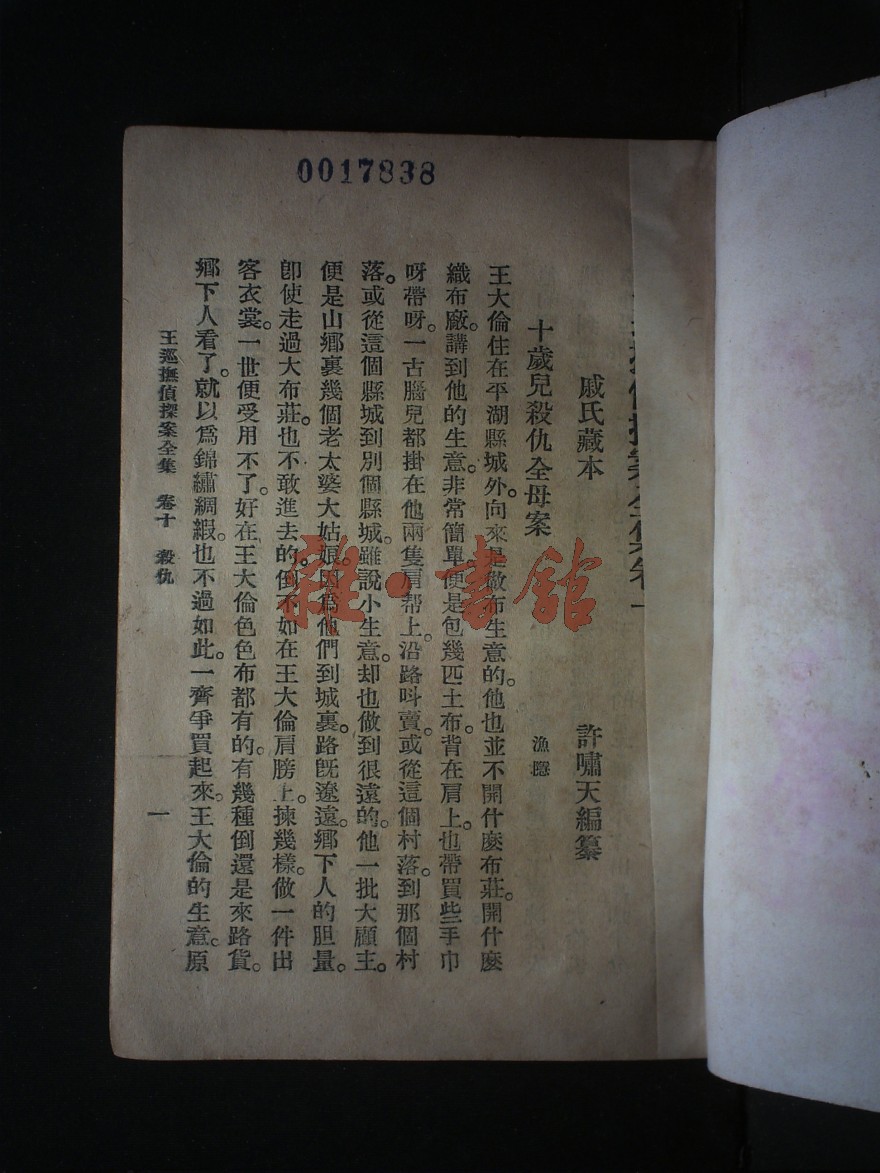 0017838
戚氏藏本
許嘯天編纂
十歲兒殺仇全母案
漁隱
王大倫住在平湖縣城外。向來是做布生意的。他也並不開什麽布莊。開什麽
織布廠。講到他的生意。非常簡單便是包幾匹土布。背在肩上。也帶買些手巾
呀帶呀。一古腦兒都掛在他兩隻肩帮上。沿路呌賣。或從這個村落。到那個村
落。或從這個縣城到別個縣城。雖說小生意。却也做到很遠的。他一批大顧主。
便是山鄉裏幾個老太婆大姑娘。因爲他們到城裏。路旣遼遠。鄉下人的胆量。
卽使走過大布莊。也不敢進去的。倒不如在王大倫肩膀上。揀幾樣。做一件出
客衣裳。一世便受用不了。好在王大倫色色布都有的。有幾種倒還是來路貨。
鄉下人看了。就以爲錦繡綢緞。也不過如此。一齊爭買起來。王大倫的生意。原
王巡撫偵探案全集 卷十 殺仇
一
雜·書館